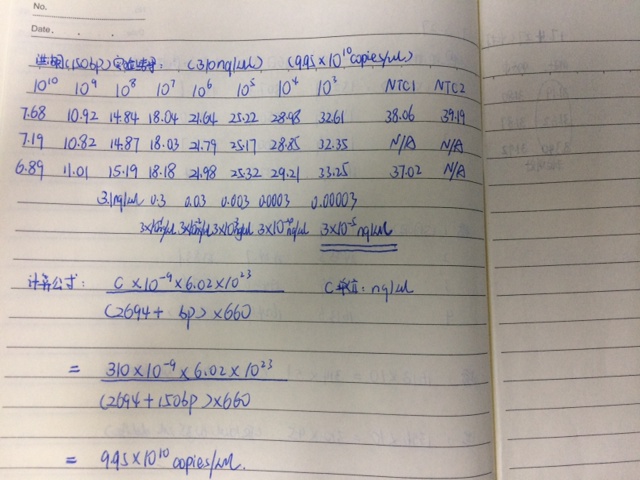 No.
Date. . .
(150bp)实验结果: (310ng/ul) (9.95×10^10 copies/ul)
10^10 10^9 10^8 10^7 10^6 10^5 10^4 10^3 NTC1 NTC2
7.68 10.92 14.84 18.04 21.64 25.22 28.98 32.61 38.06 39.19
7.19 10.82 14.87 18.03 21.79 25.17 28.85 32.35 N/A N/A
6.89 11.01 15.19 18.18 21.98 25.32 29.21 33.25 37.02 N/A
3.1ng/ul 0.3 0.03 0.003 0.0003 0.00003
3×10^-4 ng/ul 3×10^-5 ng/ul
计算公式: C×10^-9×6.02×10^23 C单位: ng/ul
(2694+ bp)×660
= 310×10^-9×6.02×10^23
(2694+150bp)×660
= 9.95×10^10 copies/ul.